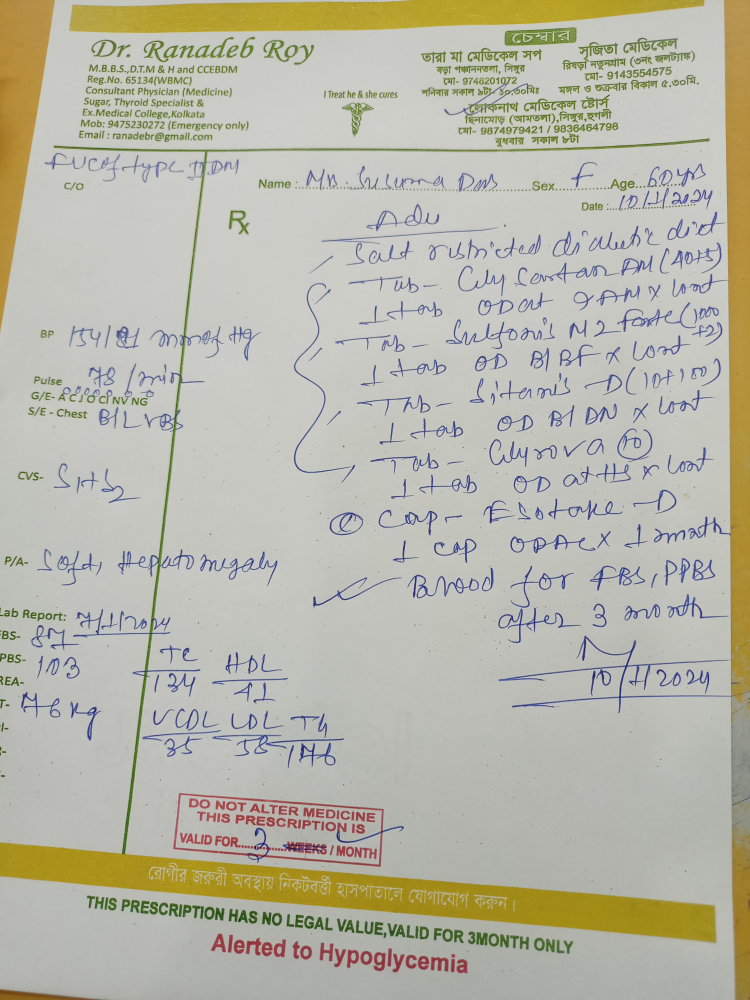 Dr. Ranadeb Roy
M.B.B.S.,D.T.M & H and CCEBDM
Reg.No. 65134(WBMC)
Consultant Physician (Medicine)
Sugar, Thyroid Specialist &
Ex.Medical College,Kolkata
Mob: 9475230272 (Emergency only)
Email : ranadebr@gmail.com
I Treat he & she cures
চেম্বার
তারা মা মেডিকেল সপ
বড়া পঞ্চাননতলা, সিঙ্গুর
মো- 9748201072
শনিবার সকাল ৯টা- ১০.৩০মিঃ
সৃজিতা মেডিকেল
রিষড়া নতুনগ্রাম (৩নং জলট্যাঙ্ক)
মো- 9143554575
মঙ্গল ও শুক্রবার বিকাল ৫.৩০মি.
লোকনাথ মেডিকেল ষ্টোর্স
ছিনামোড় (আমতলা),সিঙ্গুর,হুগলী
মো- 9874979421 / 9836464798
বুধবার সকাল ৮টা
FUC of type II DM
C/O
Name : Mrs. Susuma Das Sex F Age 60 yrs
Date : 10/1/2024
Rx
Adv
Salt restricted diabetic diet
Tab- Gly Sartan AM (40+5)
1 tab OD at 9 AM x cont
Tab- Sulfonis M2 forte (1000+2)
1 tab OD B/BF x cont
Tab- Sitanis-D (10+100)
1 tab OD B/DN x cont
Tab- Glyrova 10
1 tab OD at HS x cont
Cap- Esotake-D
1 cap OD AC x 1 month
Blood for FBS, PPBS
after 3 month
10/1/2024
BP 154/81 mm of Hg
Pulse 78/min
G/E- A C J O Cl NV NG
S/E - Chest B/L VBS
CVS- S1+S2
P/A- Soft, Hepatomegaly
Lab Report: 7/1/2024
FBS- 87
PPBS- 103
UREA-
WT- 76 kg
TC 134 HDL 41
VLDL 35 LDL 58 TG 176
DO NOT ALTER MEDICINE
THIS PRESCRIPTION IS
VALID FOR 3 WEEKS / MONTH
রোগীর জরুরী অবস্থায় নিকটবর্ত্তী হাসপাতালে যোগাযোগ করুন।
THIS PRESCRIPTION HAS NO LEGAL VALUE,VALID FOR 3MONTH ONLY
Alerted to Hypoglycemia